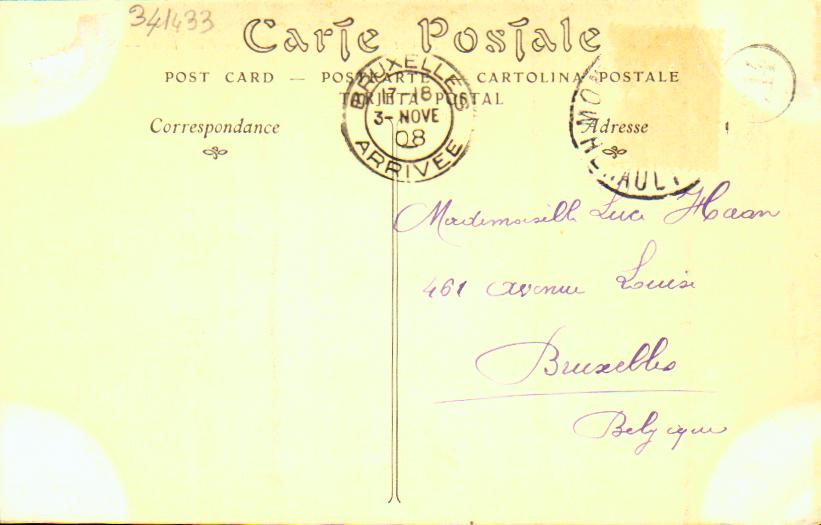 341433
Carte Postale
POST CARD — POSTKARTE — CARTOLINA POSTALE
TARJETA POSTAL
BRUXELLES
17-18
3- NOVE
08
ARRIVEE
Correspondance
Adresse
MO
HERAULT
Mademoiselle Luce Haan
461 avenue Louise
Bruxelles
Belgique